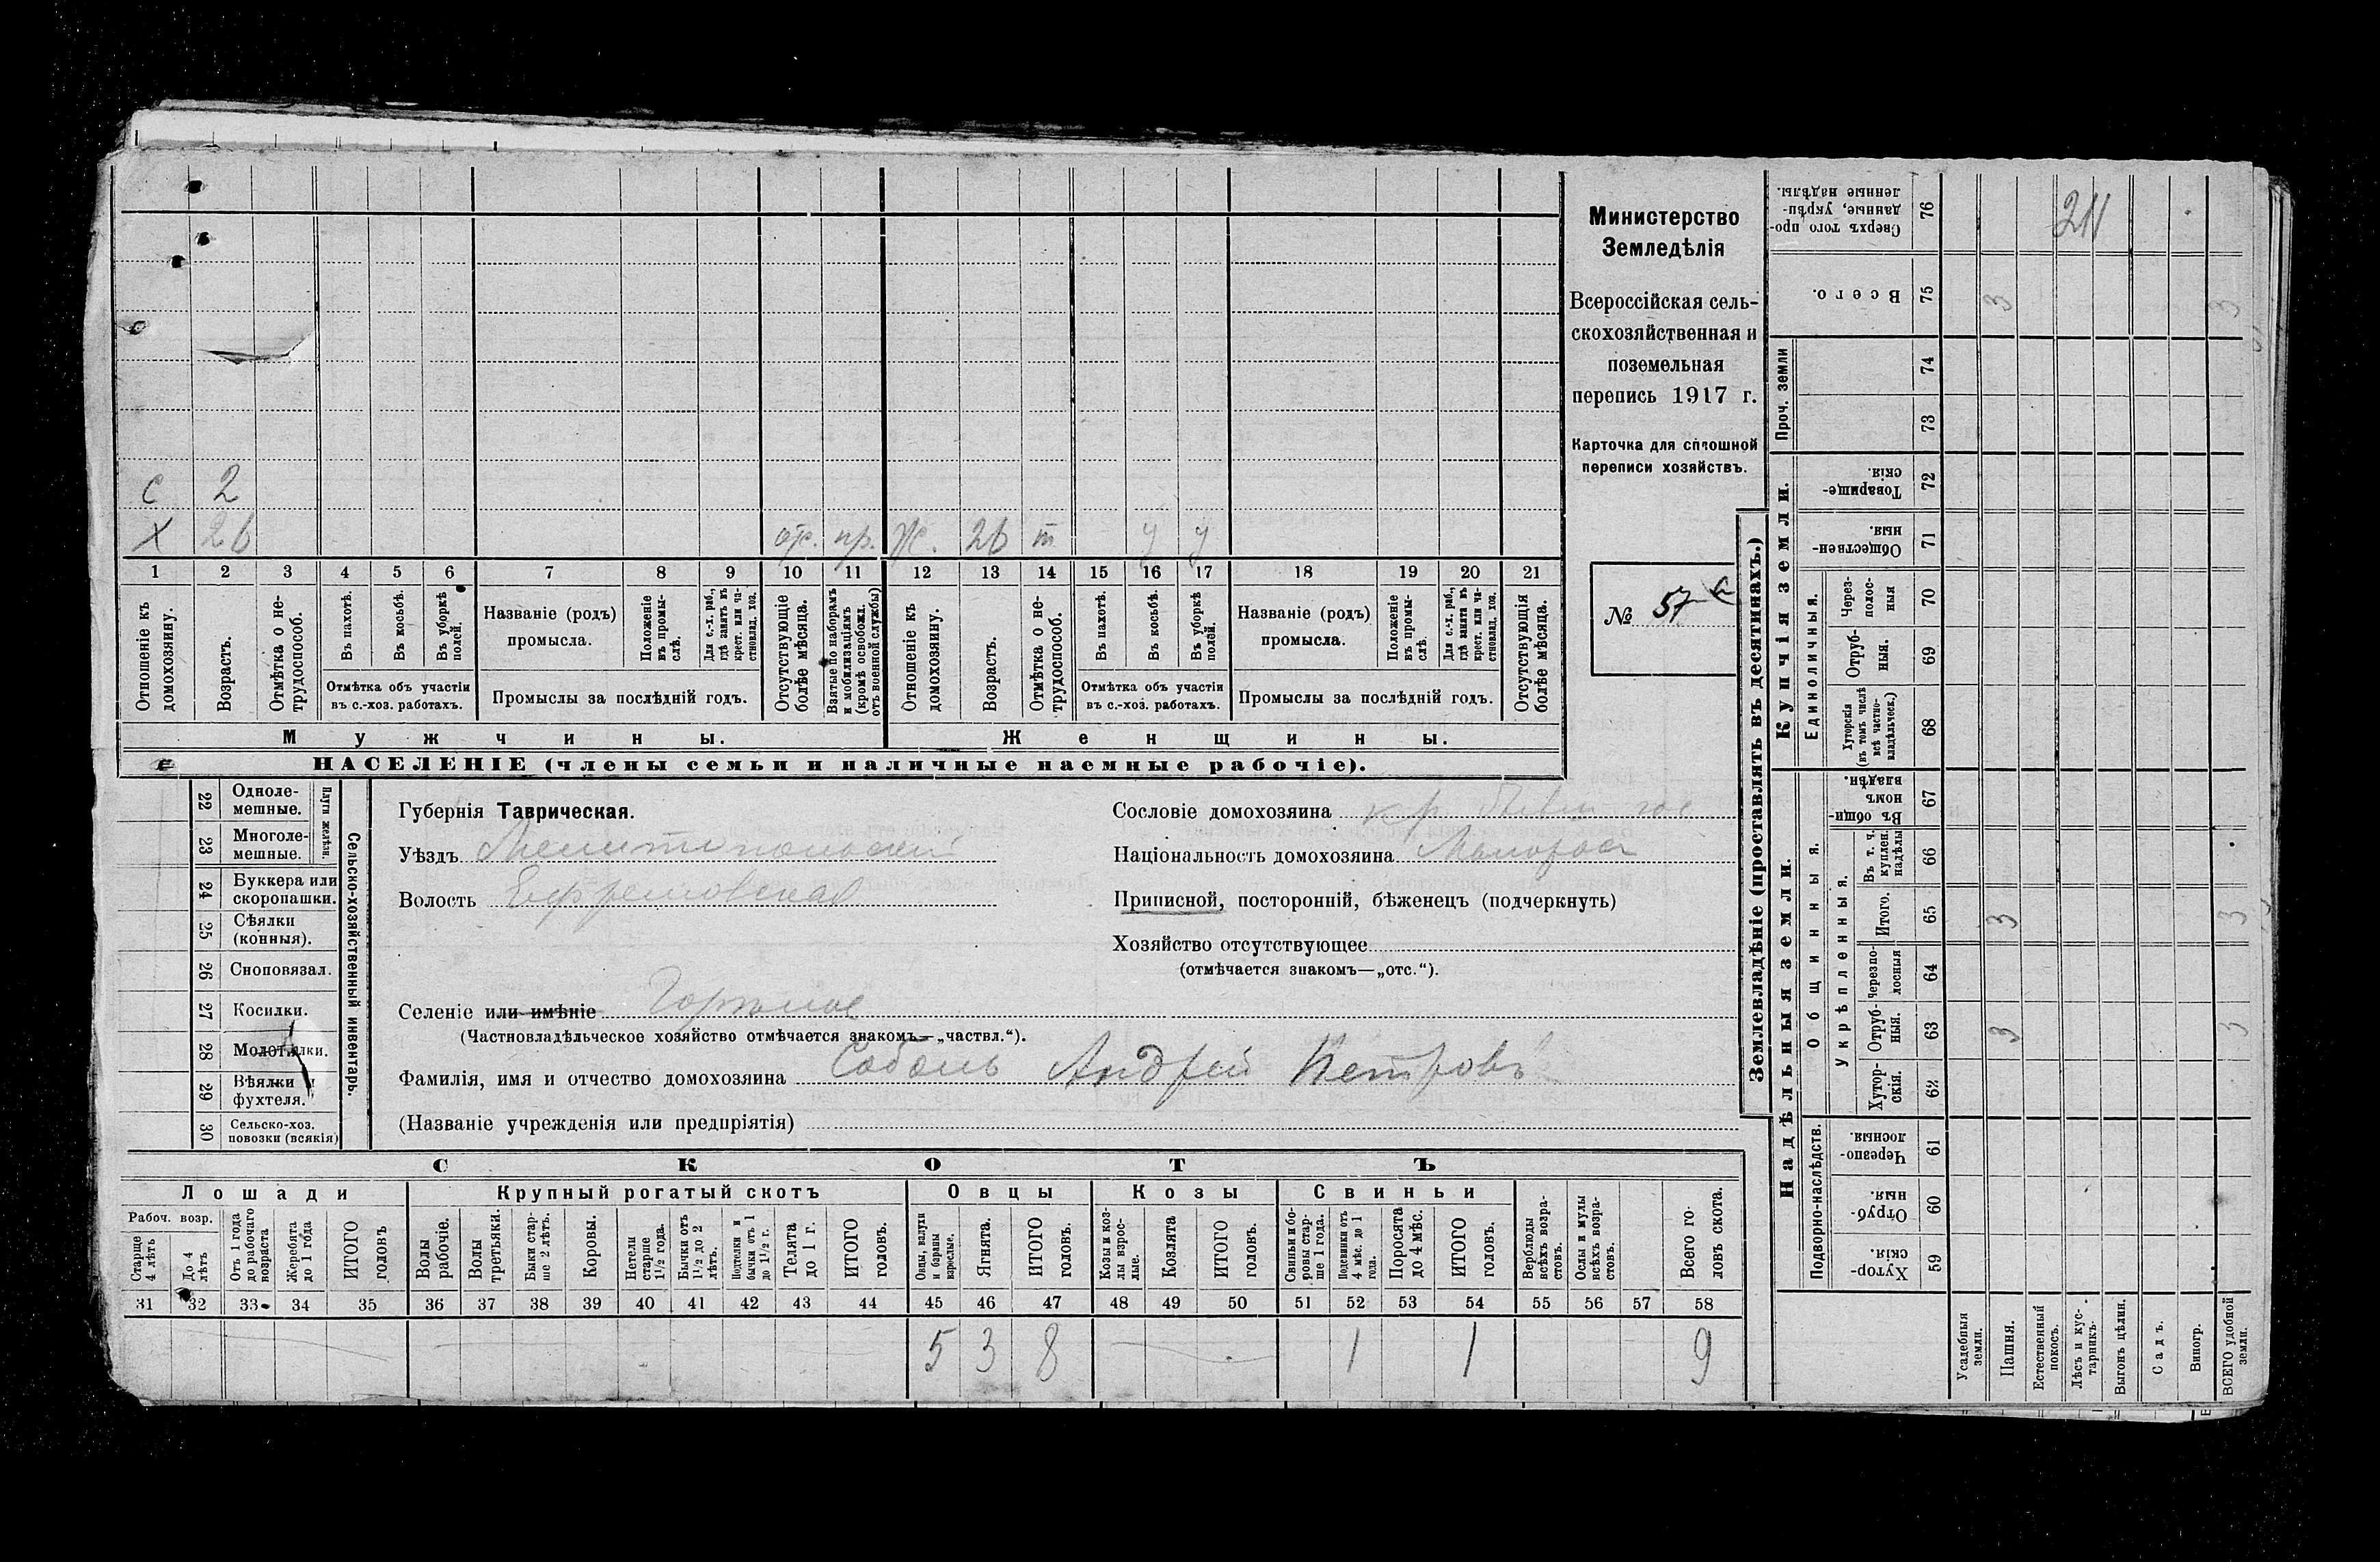 с 2
х 26 отс. пр. Ж. 26 т у у
1 2 3 4 5 6 7 8 9 10 11 12 13 14 15 16 17 18 19 20 21
Отношеніе къ домохозяину.
Возрастъ.
Отмѣтка о не-трудоспособ.
Въ пахотѣ.
Въ косьбѣ.
Въ уборкѣ полей.
Отмѣтка объ участіи
въ с.-хоз. работахъ.
Названіе (родъ)
промысла.
Положеніе въ промы-слѣ.
Для с.-х. раб., гдѣ занятъ въ крест. или ча-стновлад. хоз.
Промыслы за послѣдній годъ.
Отсутствующіе болѣе мѣсяца.
Взятые по наборамъ и мобилизаціямъ (кромѣ освобожд. отъ военной службы)
Отношеніе къ домохозяину.
Возрастъ.
Отмѣтка о не-трудоспособ.
Въ пахотѣ.
Въ косьбѣ.
Въ уборкѣ полей.
Отмѣтка объ участіи
въ с.-хоз. работахъ.
Названіе (родъ)
промысла.
Положеніе въ промы-слѣ.
Для с.-х. раб., гдѣ занята въ крест. или ча-стновлад. хоз.
Промыслы за послѣдній годъ.
Отсутствующія болѣе мѣсяца.
Мужчины. Женщины.
НАСЕЛЕНІЕ (члены семьи и наличные наемные рабочіе).
Министерство
Земледѣлія
Всероссійская сель-
скохозяйственная и
поземельная
перепись 1917 г.
Карточка для сплошной
переписи хозяйствъ.
№ 57
22 Одноле-мешные.
23 Многоле-мешные.
Плуги желѣзн.
24 Буккера или скоропашки.
25 Сѣялки (конныя).
26 Сноповязал.
27 Косилки.
28 Молотилки.
29 Вѣялки и фухтеля.
30 Сельско-хоз. повозки (всякія)
Сельско-хозяйственный инвентарь.
Губернія Таврическая.
Уѣздъ Мелитопольскій
Волость Ефремовская
Селеніе или имѣніе Горѣлое
(Частновладѣльческое хозяйство отмѣчается знакомъ—„частвл.“).
Фамилія, имя и отчество домохозяина Соболь Андрей Петровъ
(Названіе учрежденія или предпріятія)
Сословіе домохозяина кр. бывш. гос
Національность домохозяина Малоросъ
Приписной, посторонній, бѣженецъ (подчеркнуть)
Хозяйство отсутствующее
(отмѣчается знакомъ—„отс.“).
СКОТЪ
Лошади Крупный рогатый скотъ Овцы Козы Свиньи
Рабоч. возр.
Старше 4 лѣтъ
До 4 лѣтъ
Отъ 1 года до рабочаго возраста
Жеребята до 1 года
ИТОГО головъ
Волы рабочіе.
Волы третьяки.
Быки стар-ше 2 лѣтъ.
Коровы.
Нетели старше 1½ года.
Бычки отъ 1½ до 2 лѣтъ.
Подтелки и бычки отъ 1 до 1½ г.
Телята до 1 г.
ИТОГО головъ.
Овцы, валухи и бараны взрослые.
Ягнята.
ИТОГО головъ.
Козы и коз-лы взрос-лые.
Козлята
ИТОГО головъ.
Свиньи и бо-ровы стар-ше 1 года.
Подсвинки отъ 4 мѣс. до 1 года.
Поросята до 4 мѣс.
ИТОГО головъ.
Верблюды всѣхъ возра-стовъ.
Ослы и мулы всѣхъ возра-стовъ.
Всего го-ловъ скота.
31 32 33 34 35 36 37 38 39 40 41 42 43 44 45 46 47 48 49 50 51 52 53 54 55 56 57 58
5 3 8 1 1 9
Землевладѣніе (проставлять въ десятинахъ.)
Надѣльныя земли. Купчія земли. Проч. земли
Подворно-наслѣдств.
Общинныя.
Укрѣпленныя.
Единоличныя.
59 Хутор-скія.
60 Отруб-ныя.
61 Черезпо-лосныя.
62 Хутор-скія.
63 Отруб-ныя. 3 3
64 Черезпо-лосныя
65 Итого. 3 3
66 Въ т. ч. куплен. надѣлы
67 Въ общин-номъ владѣн.
68 Хуторскія (въ томъ числѣ всѣ частно-владѣльческ.)
69 Отруб-ныя.
70 Через-полос-ныя
71 Обществен-ныя.
72 Товарище-скія.
73
74
75 Всего. 3 3
76 Сверхъ того про-данные, укрѣп-ленные надѣлы.
Усадебныя земли.
Пашня.
Естественный покосъ.
Лѣсъ и кус-тарникъ.
Выгонъ цѣлин.
Садъ.
Виногр.
ВСЕГО удобной земли.